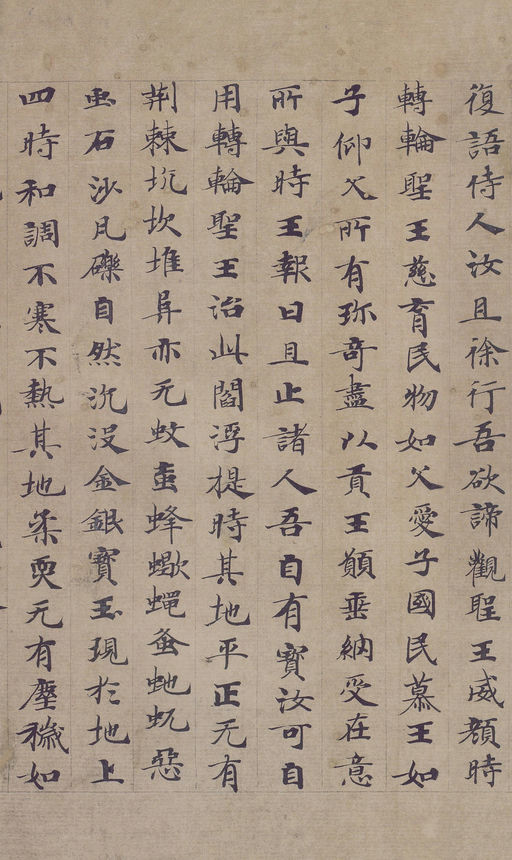 復語侍人汝且徐行吾欲諦觀聖王威顏時
轉輪聖王慈育民物如父愛子國民慕王如
子仰父所有珎奇盡以貢王願垂納受在意
所與時王報曰且止諸人吾自有寶汝可自
用轉輪聖王治此閻浮提時其地平正无有
荆棘坑坎堆阜亦无蚊䖟蜂蠍蠅蚤虵蚖惡
虫石沙凡礫自然沉沒金銀寶玉現於地上
四時和調不寒不熱其地柔耎无有塵穢如